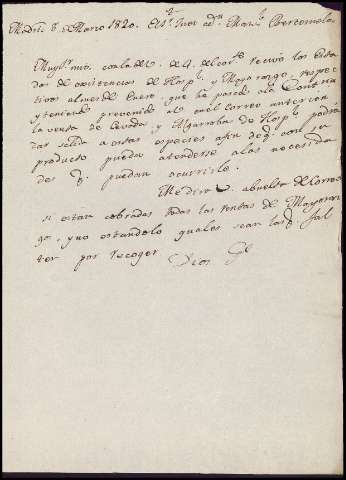 Madrid 8. Marzo 1820. Al Sr. Juez adm. Man.l Berzosa
Muy S.r mio. con la de V. de 4. del corr.te recivo los Esta
dos de existencias de Hosp.l y Mayorazgo, respec
tivos al mes de Enero, que he pasado a la Contad.a
y teniendo prevenido al mil correo anterior
la venta de Cevada y Algarroba de Hosp.l podrá
dar salida a estas especies afin de q.e con su
producto puedan atenderse a las necesida
des q.e puedan ocurrirle.
Me dirá V. a buelta de Correo
si estan cobradas todas las rentas de Mayoraz
go, y no estandolo quales sean las q.e fal
ten por recoger Dios G.e